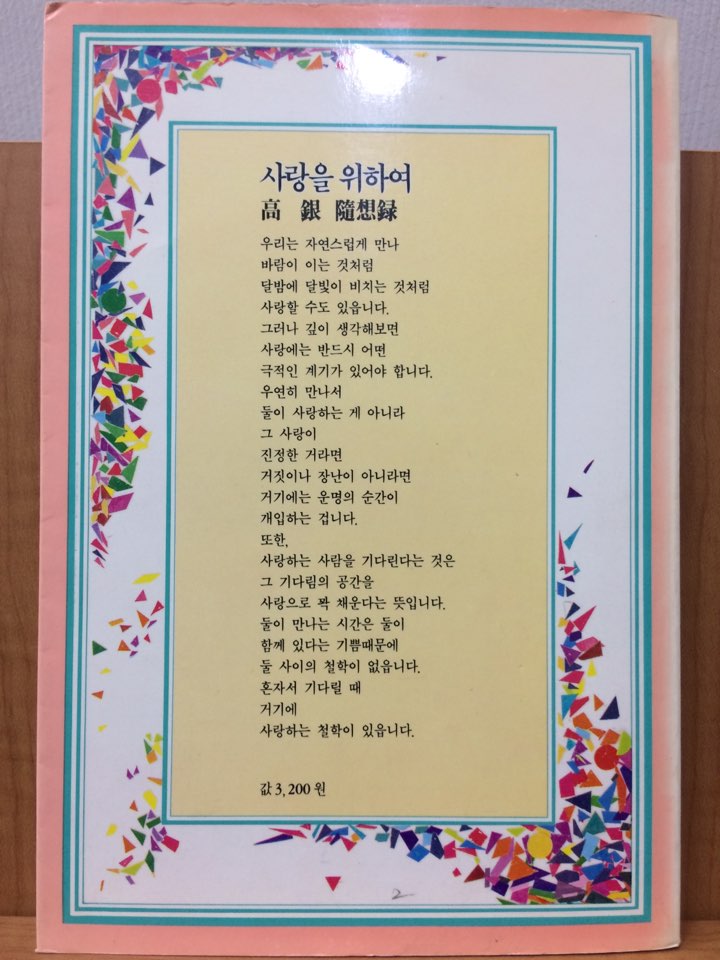 사랑을 위하여
高 銀 隨想録
우리는 자연스럽게 만나
바람이 이는 것처럼
달밤에 달빛이 비치는 것처럼
사랑할 수도 있읍니다.
그러나 깊이 생각해보면
사랑에는 반드시 어떤
극적인 계기가 있어야 합니다.
우연히 만나서
둘이 사랑하는 게 아니라
그 사랑이
진정한 거라면
거짓이나 장난이 아니라면
거기에는 운명의 순간이
개입하는 겁니다.
또한,
사랑하는 사람을 기다린다는 것은
그 기다림의 공간을
사랑으로 꽉 채운다는 뜻입니다.
둘이 만나는 시간은 둘이
함께 있다는 기쁨때문에
둘 사이의 철학이 없읍니다.
혼자서 기다릴 때
거기에
사랑하는 철학이 있읍니다.
값 3,200 원
2